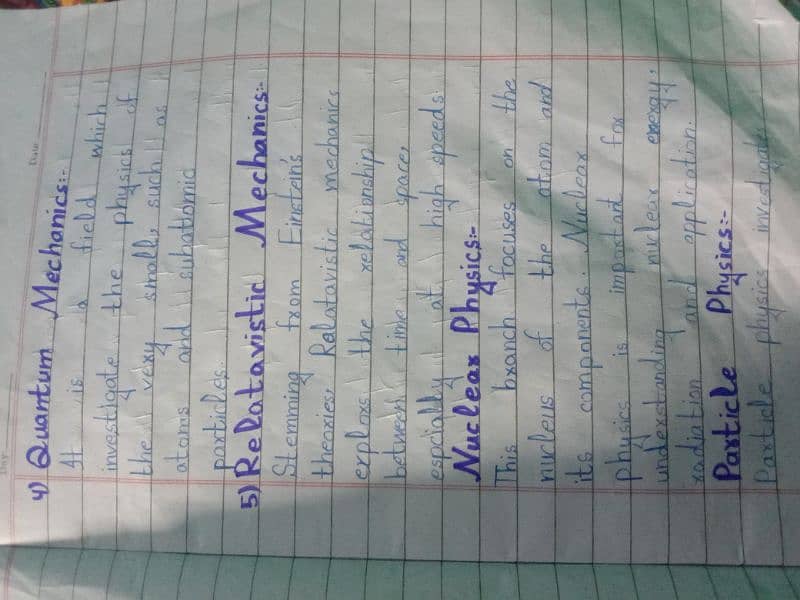 Day
Date
4) Quantum Mechanics:-
It is a field which
investigate the physics of
the very small, such as
atoms and subattomic
particles.
5) Relatavistic Mechanics:-
Stemming from Einstein's
theories, Ralatavistic mechanics
explors the relationship
between time and space,
espcially at high speeds.
Nuclear Physics:-
This branch focuses on the
nucleus of the atom and
its components. Nuclear
physics is important for
understanding nuclear energy,
radiation and application.
Particle Physics:-
Particle physics investigate